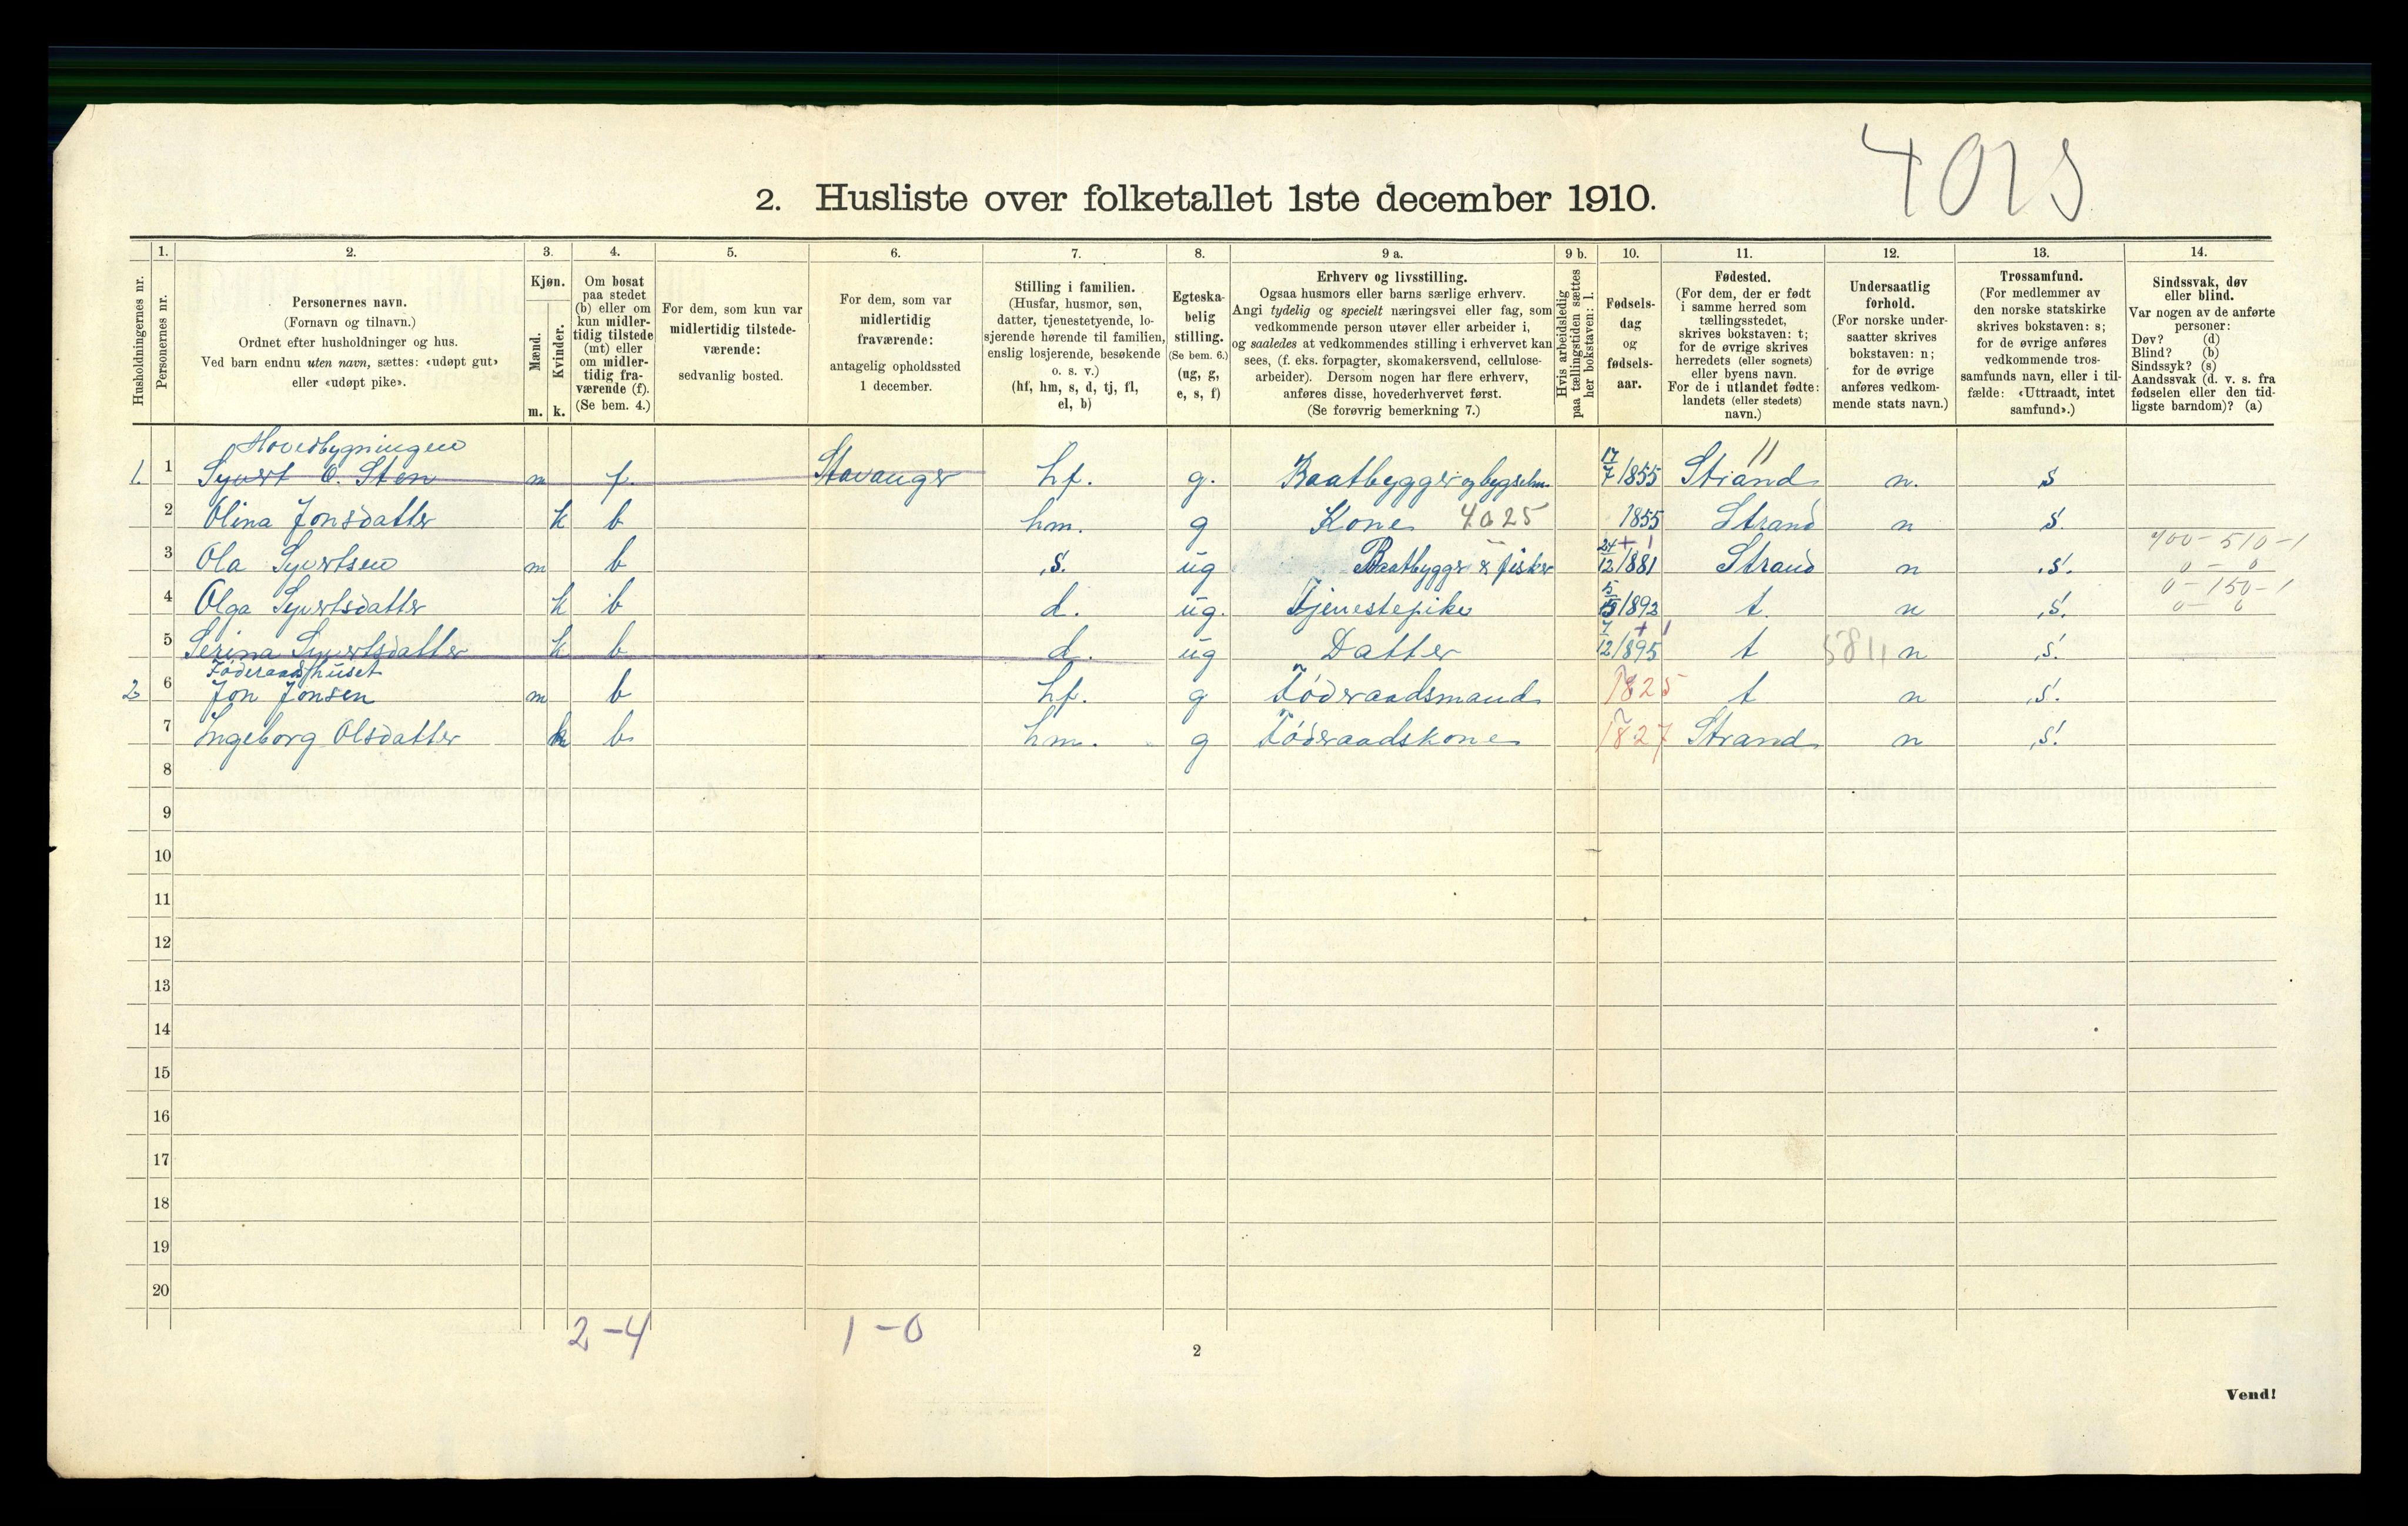 4025
2. Husliste over folketallet 1ste december 1910.
Husholdningernes nr.
1.
Personernes nr.
2.
Personernes navn.
(Fornavn og tilnavn.)
Ordnet efter husholdninger og hus.
Ved barn endnu uten navn, sættes: «udøpt gut»
eller «udøpt pike».
3.
Kjøn.
Mænd.
Kvinder.
m. k.
4.
Om bosat
paa stedet
(b) eller om
kun midler-
tidig tilstede
(mt) eller
om midler-
tidig fra-
værende (f).
(Se bem. 4.)
5.
For dem, som kun var
midlertidig tilstede-
værende:
sedvanlig bosted.
6.
For dem, som var
midlertidig
fraværende:
antagelig opholdssted
1 december.
7.
Stilling i familien.
(Husfar, husmor, søn,
datter, tjenestetyende, lo-
sjerende hørende til familien,
enslig losjerende, besøkende
o. s. v.)
(hf, hm, s, d, tj, fl,
el, b)
8.
Egteska-
belig
stilling.
(Se bem. 6.)
(ug, g,
e, s, f)
9 a.
Erhverv og livsstilling.
Ogsaa husmors eller barns særlige erhverv.
Angi tydelig og specielt næringsvei eller fag, som
vedkommende person utøver eller arbeider i,
og saaledes at vedkommendes stilling i erhvervet kan
sees, (f. eks. forpagter, skomakersvend, cellulose-
arbeider). Dersom nogen har flere erhverv,
anføres disse, hovederhvervet først.
(Se forøvrig bemerkning 7.)
9 b.
Hvis arbeidsledig
paa tællingstiden sættes
her bokstaven: l.
10.
Fødsels-
dag
og
fødsels-
aar.
11.
Fødested.
(For dem, der er født
i samme herred som
tællingsstedet,
skrives bokstaven: t;
for de øvrige skrives
herredets (eller sognets)
eller byens navn.
For de i utlandet fødte:
landets (eller stedets)
navn.)
12.
Undersaatlig
forhold.
(For norske under-
saatter skrives
bokstaven: n;
for de øvrige
anføres vedkom-
mende stats navn.)
13.
Trossamfund.
(For medlemmer av
den norske statskirke
skrives bokstaven: s;
for de øvrige anføres
vedkommende tros-
samfunds navn, eller i til-
fælde: «Uttraadt, intet
samfund».)
14.
Sindssvak, døv
eller blind.
Var nogen av de anførte
personer:
Døv? (d)
Blind? (b)
Sindssyk? (s)
Aandssvak (d. v. s. fra
fødselen eller den tid-
ligste barndom)? (a)
Hovedbygningen
1. 1 Syvert O. Sten m f. Stavanger hf. g. Baatbygger og bygselm. 17/7 1855 Strand 11 n. s
2 Olina Jonsdatter k b hm. g Kone 4025 1855 Strand n s.
3 Ola Syvertsen m b s. ug Baatbygger & fisker 24/12 1881 Strand n s. 400-510-1
0-0
4 Olga Syvertsdatter k b d. ug. Tjenestepike 1892 t. n s. 0-150-1
0-0
5 Serina Syvertsdatter k b d. ug Datter 7/12 1895 t 5811 n s.
Føderaadshuset
2 6 Jon Jonsen m b hf. g Føderaadsmand 1825 t n s.
7 Ingeborg Olsdatter k b hm. g Føderaadskone 1827 Strand n s.
8
9
10
11
12
13
14
15
16
17
18
19
20
2-4 1-0
2
Vend!